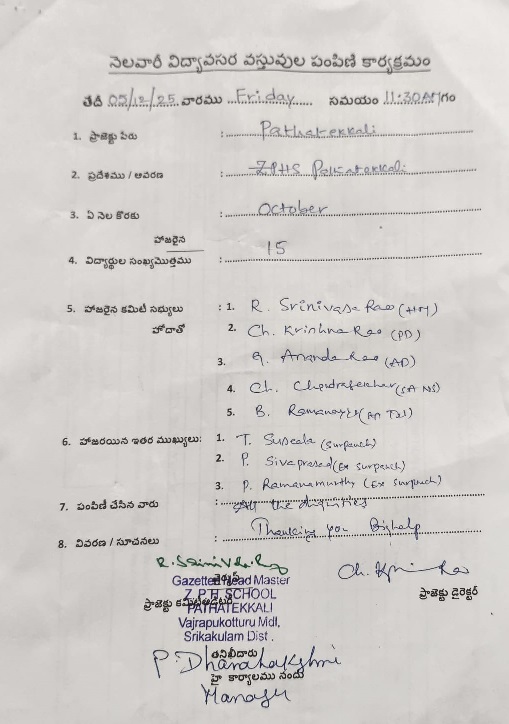 నెలవారీ విద్యావసర వస్తువుల పంపిణీ కార్యక్రమం
తేదీ 05/12/25 వారము Friday సమయం 11:30AM గం
1. ప్రాజెక్టు పేరు : Pathatekkali
2. ప్రదేశము / ఆవరణ : ZPHS Pathatekkali
3. ఏ నెల కొరకు : October
హాజరైన
4. విద్యార్థుల సంఖ్యమొత్తము : 15
5. హాజరైన కమిటీ సభ్యులు : 1. R. Srinivasa Rao (HM)
హోదాతో 2. Ch. Krishna Rao (PD)
3. G. Ananda Rao (AD)
4. Ch. Chandrasekhar (SA NS)
5. B.
6. హాజరయిన ఇతర ముఖ్యులు: 1. T. Suseela (Surpanch)
2. P. Sivaprasad (Ex Surpanch)
3. P. Ramanamurthy (Ex Surpanch)
7. పంపిణీ చేసిన వారు : All the
8. వివరణ / సూచనలు : Thanking you Bighelp
Gazetted Head Master
Z.P.H.SCHOOL
ప్రాజెక్టు ప్రాజెక్టు డైరెక్టర్
PATHATEKKALI
Vajrapukotturu Mdl,
Srikakulam Dist.
తనిఖీదారు
P. Dhanalakshmi
హై కార్యాలము నందు
Manager